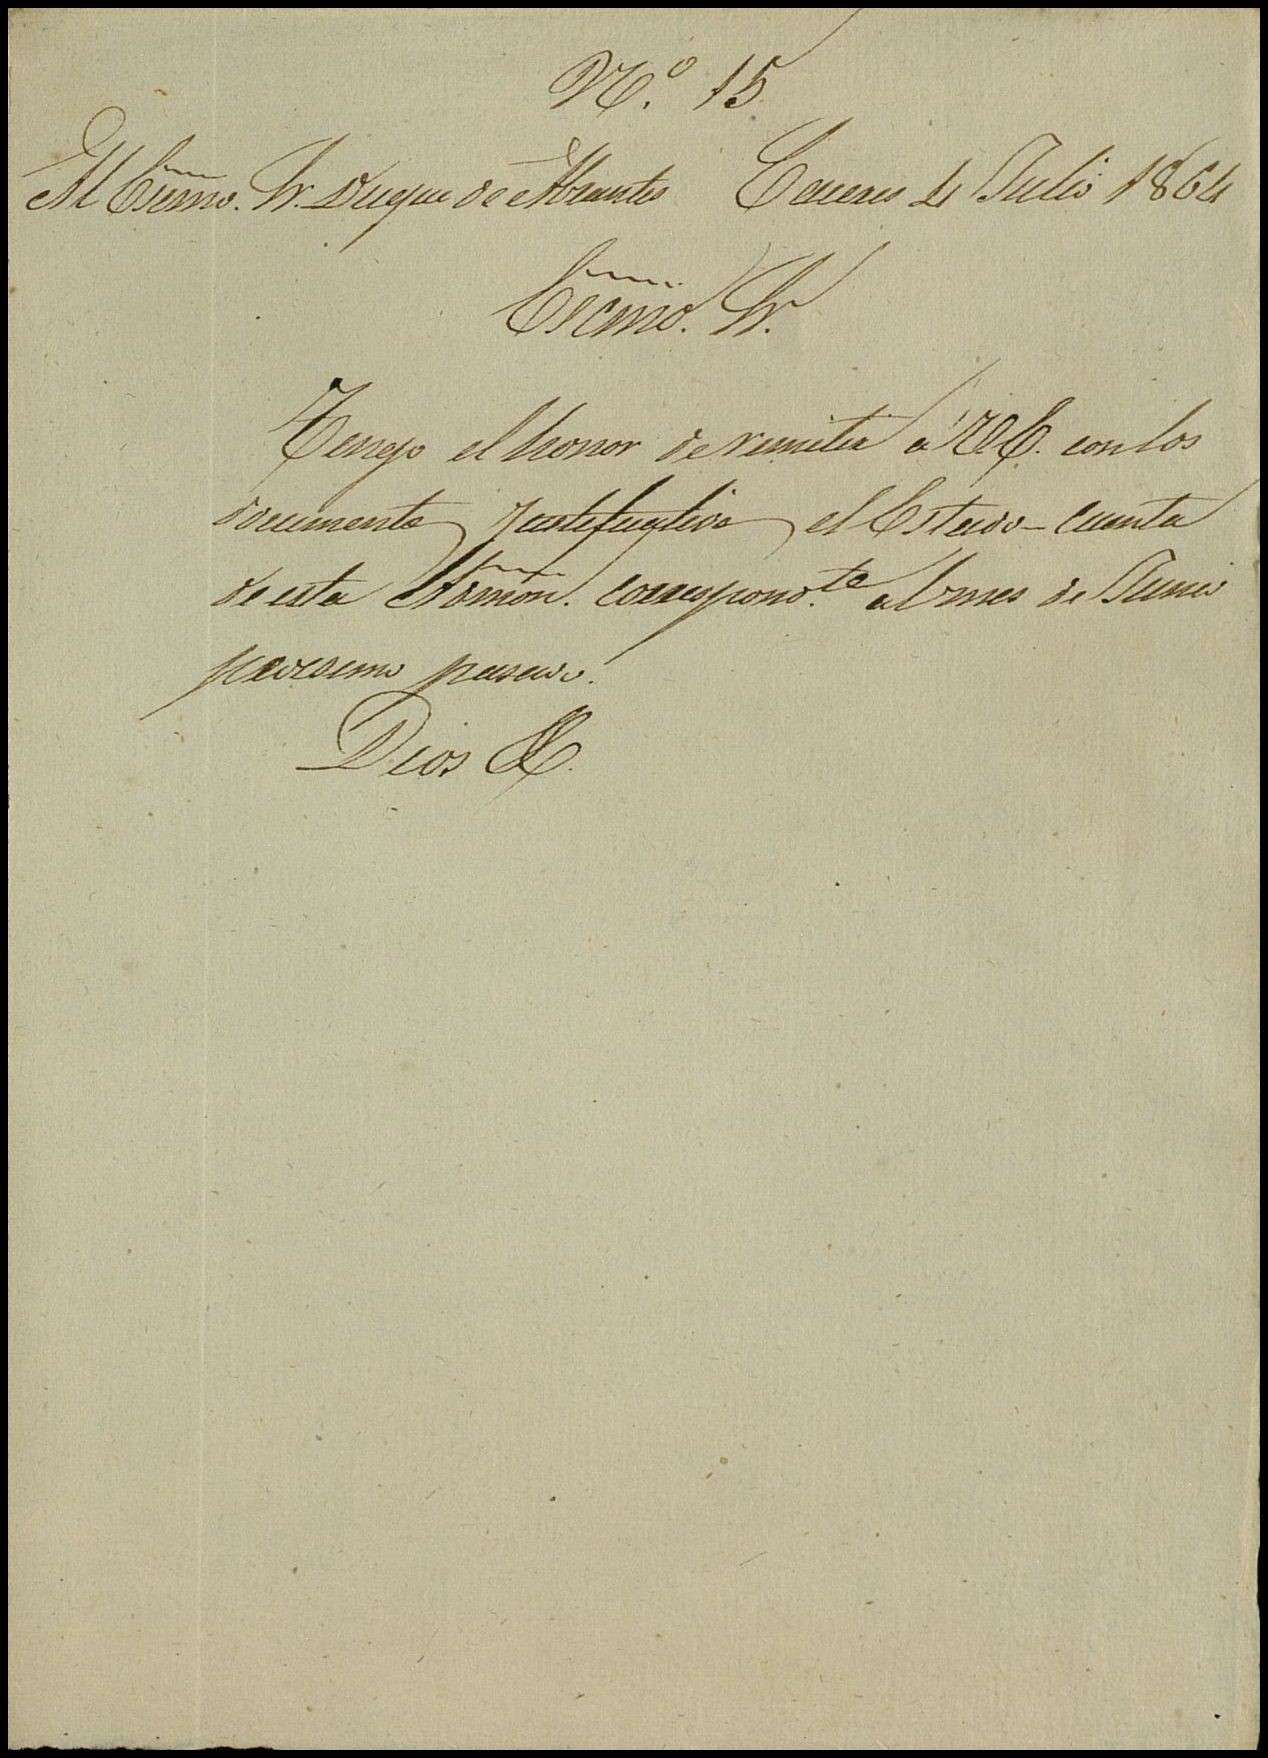 N.º 15
Al Excmo. Sr. Duque de Abrantes Caceres 4 Julio 1864
Excmo. Sr.
Tengo el honor de remitir á V.E. con los
documentos justificativos el Estado-cuenta
de esta Admon. correspond.te al mes de Junio
procsimo pasado.
Dios &.